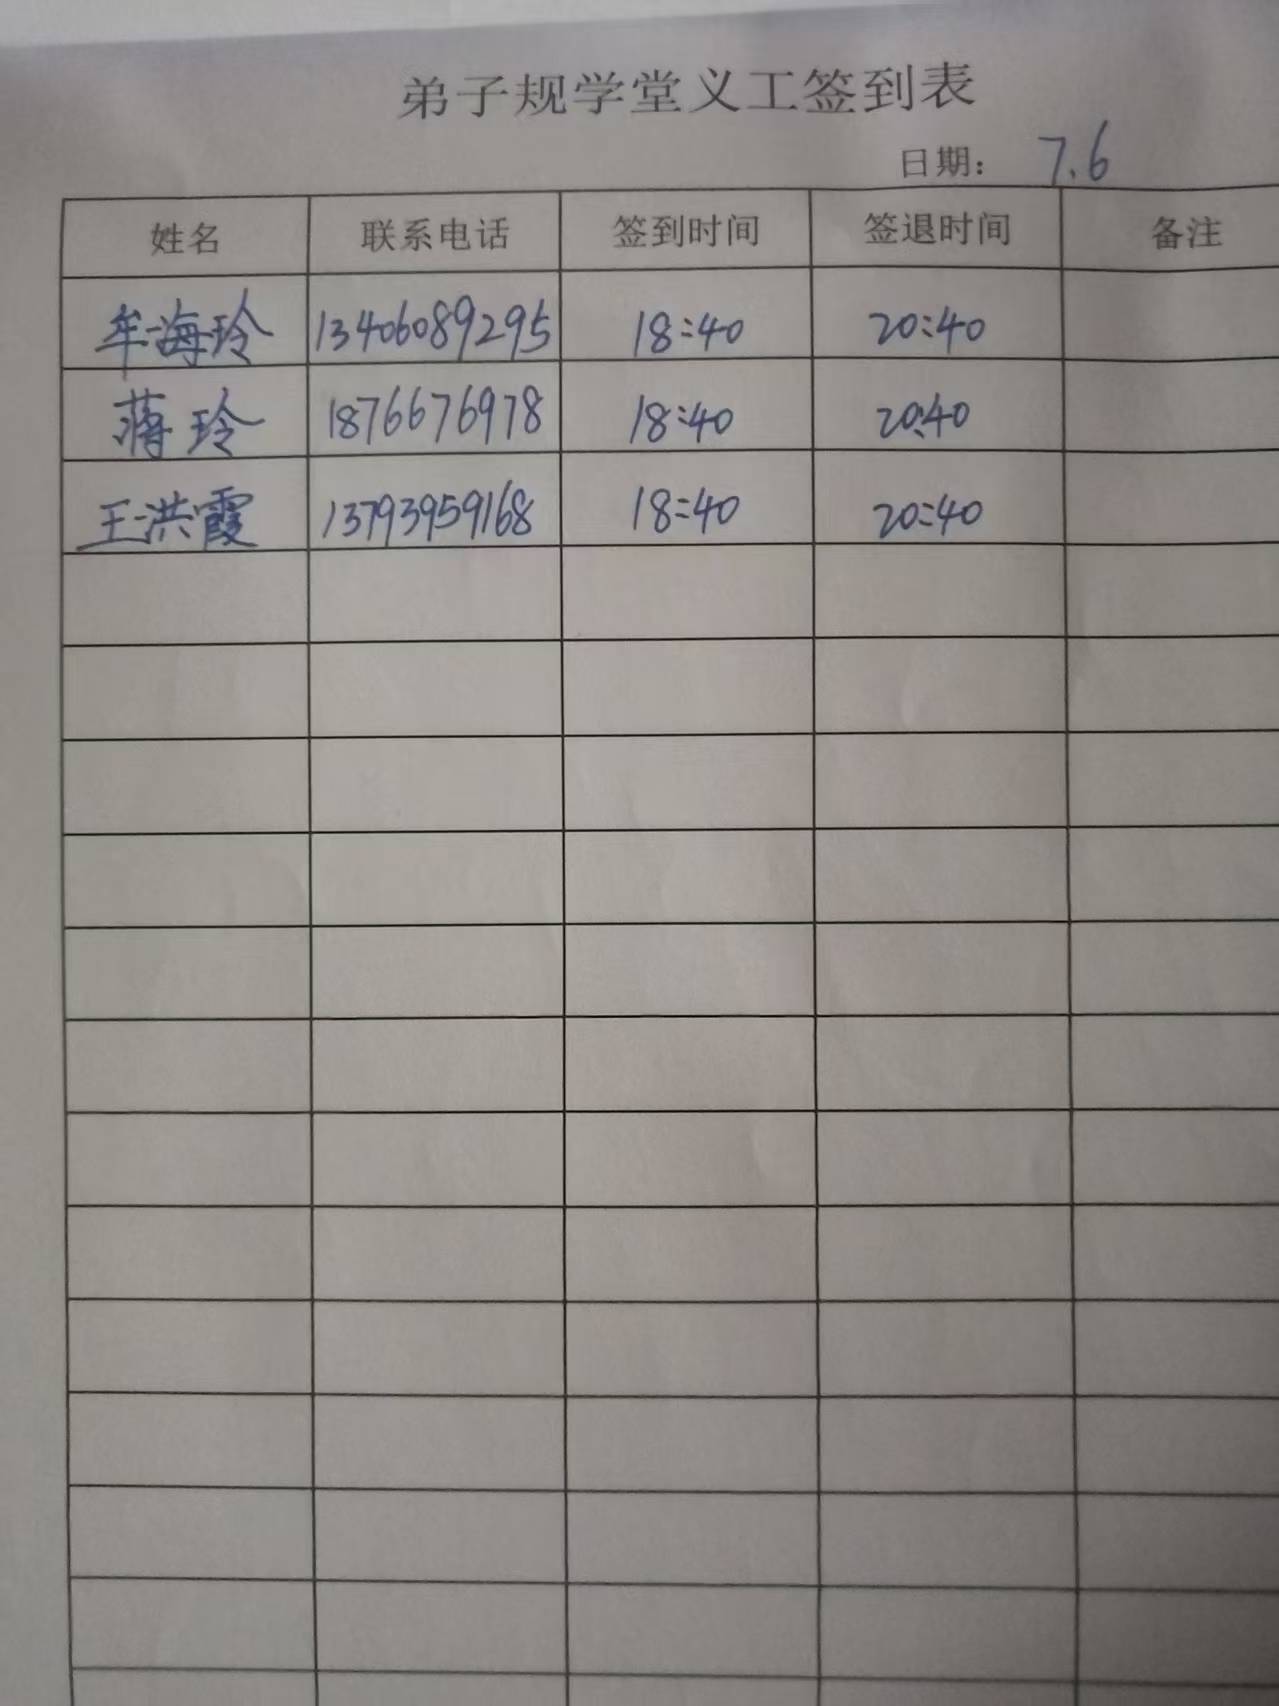 弟子规学堂义工签到表
日期： 7.6
姓名 联系电话 签到时间 签退时间 备注
牟海玲 13406089295 18:40 20:40
蒋玲 1876676978 18:40 20:40
王洪霞 13793959168 18:40 20:40